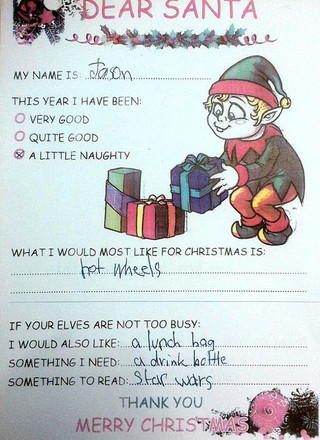 DEAR SANTA
MY NAME IS: Jason
THIS YEAR I HAVE BEEN:
VERY GOOD
QUITE GOOD
A LITTLE NAUGHTY
WHAT I WOULD MOST LIKE FOR CHRISTMAS IS:
hot wheels
IF YOUR ELVES ARE NOT TOO BUSY:
I WOULD ALSO LIKE: a lunch bag
SOMETHING I NEED: a drink bottle
SOMETHING TO READ: Star wars
THANK YOU
MERRY CHRISTMAS